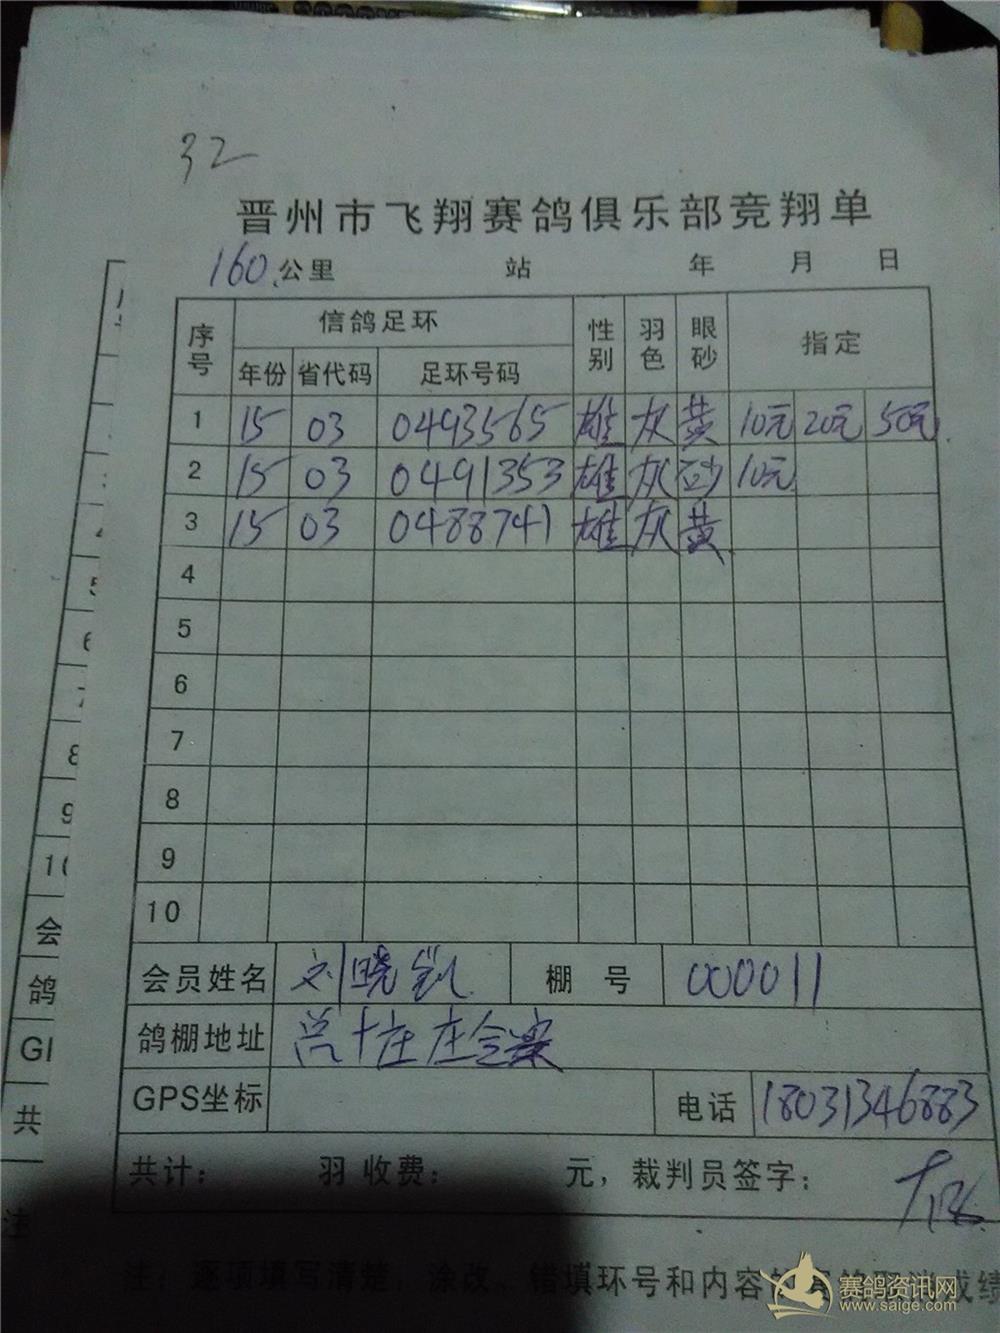 32
晋州市飞翔赛鸽俱乐部竞翔单
160.公里 站 年 月 日
序号 信鸽足环 性别 羽色 眼砂 指定
年份 省代码 足环号码
1 15 03 0493565 雄 灰 黄 10元 20元 50元
2 15 03 0491353 雄 灰 砂 10元
3 15 03 0488741 雄 灰 黄
4
5
6
7
8
9
10
会员姓名 刘晓 棚号 000011
鸽棚地址 庄
GPS坐标 电话 18031346883
共计： 羽 收费： 元，裁判员签字：
注：逐项填写清楚，涂改、错填环号和内容的赛鸽取消成绩
赛鸽资讯网
www.saige.com
5
6
7
8
9
10
会
鸽
GI
共
注